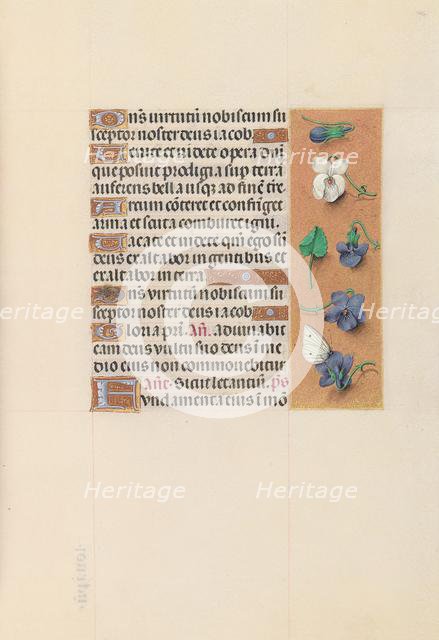 Dñs virtutũ nobiscum su
sceptor noster deus iacob
Venite et videte opera dñi
que posuit prodigia sup terrã
auferens bella usqȝ ad finẽ tre
Arcum cõteret et confringet
arma et scuta comburet igni.
Vacate et videte qm̃ ego sũ
deus exaltabor in gentibus et
exaltabor in terra
Dñs virtutũ nobiscum su
sceptor noster deus iacob
Gloria pri. Añ. adiuuabit
eam deus vultu suo deus ĩ me
dio eius non commouebitur
Añe. Sicut letantiũ. ps
Fundamenta eius ĩ mõ
Heritage Heritage Heritage
Heritage Heritage Heritage
Heritage Heritage Heritage